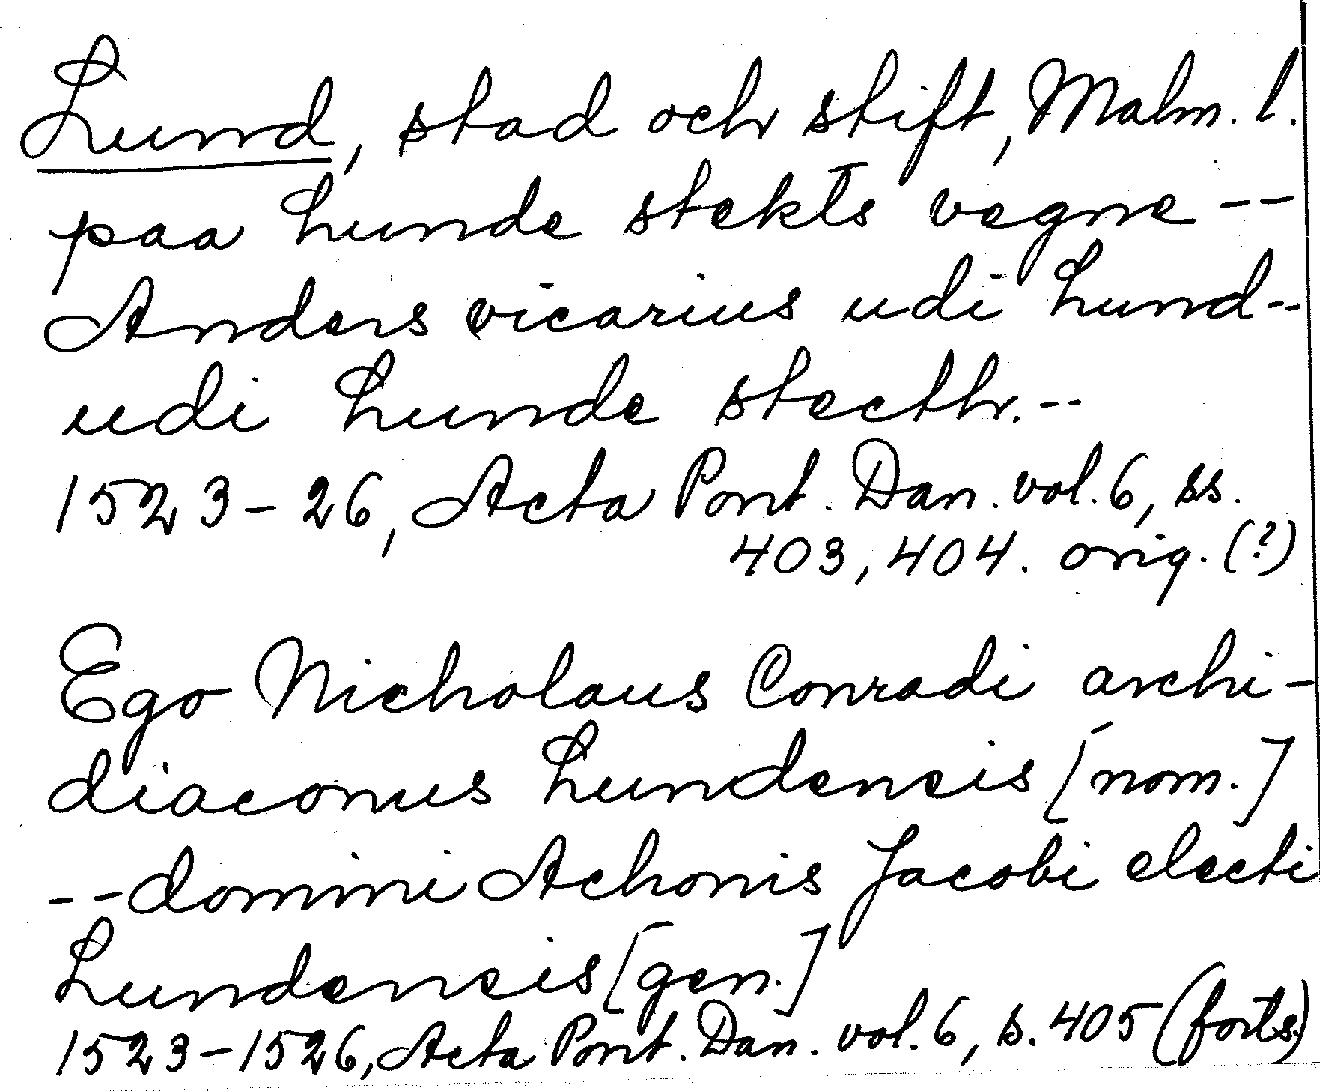 Lund, stad och stift, Malm. l.
paa Lunde stekts vegne --
Anders vicarius udi Lund--
udi Lunde stecthr.--
1523-26, Acta Pont. Dan. vol. 6, ss.
403, 404. orig. (?)
Ego Nicholaus Conradi archi-
diaconus Lundensis [nom.]
--domini Achonis Jacobi electi
Lundensis [gen.]
1523-1526, Acta Pont. Dan. vol. 6, s. 405 (forts.)